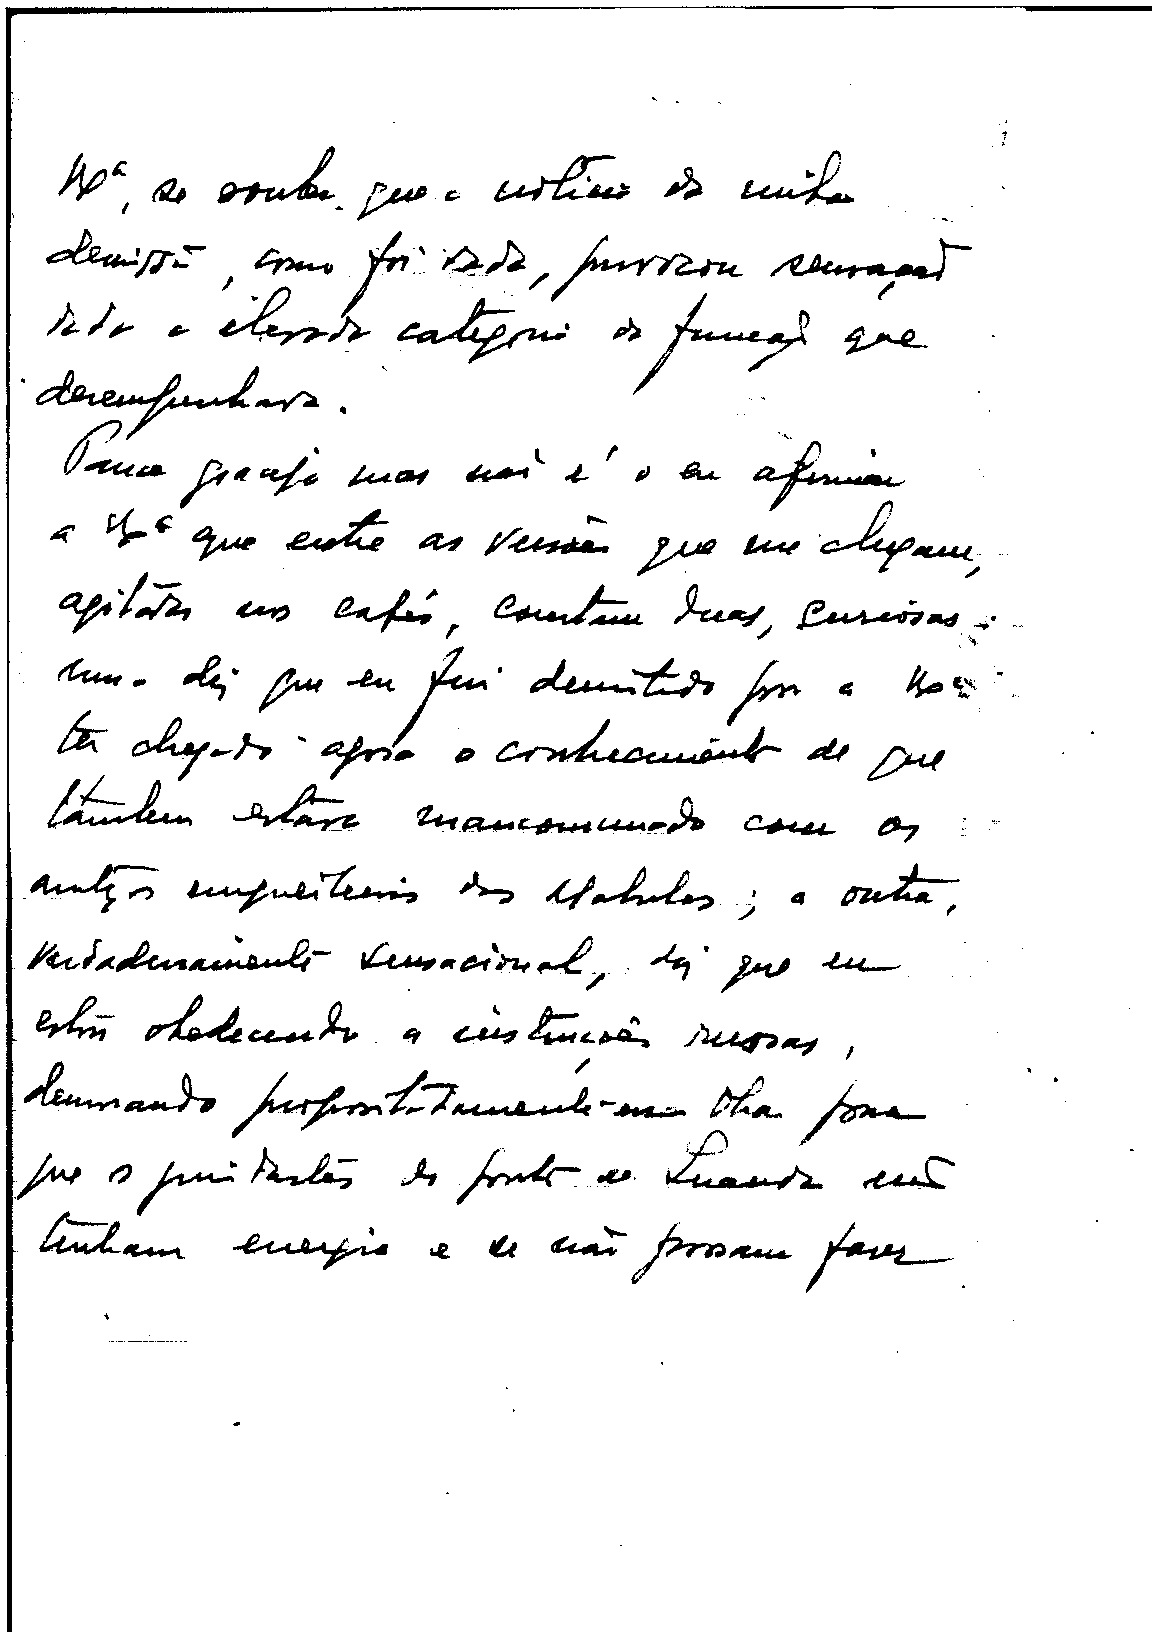 V. Exª, se souber que a notícia da minha
demissão, como foi dada, provocou sensação
dada a elevada categoria da função que
desempenhava.
Parece gracejo mas não é o eu afirmar
a V. Exª que entre as versões que me chegam,
agitadas nos cafés, constam duas, curiosas:
uma diz que eu fui demitido por a V. Exª
ter chegado agora o conhecimento de que
tambem estava mancomunado com os
antigos empreiteiros das Mabubas; a outra,
verdadeiramente sensacional, diz que eu
estou obedecendo a instruções russas,
demorando propositadamente essa obra para
que os guindastes do porto de Luanda não
tenham energia e se não possam fazer